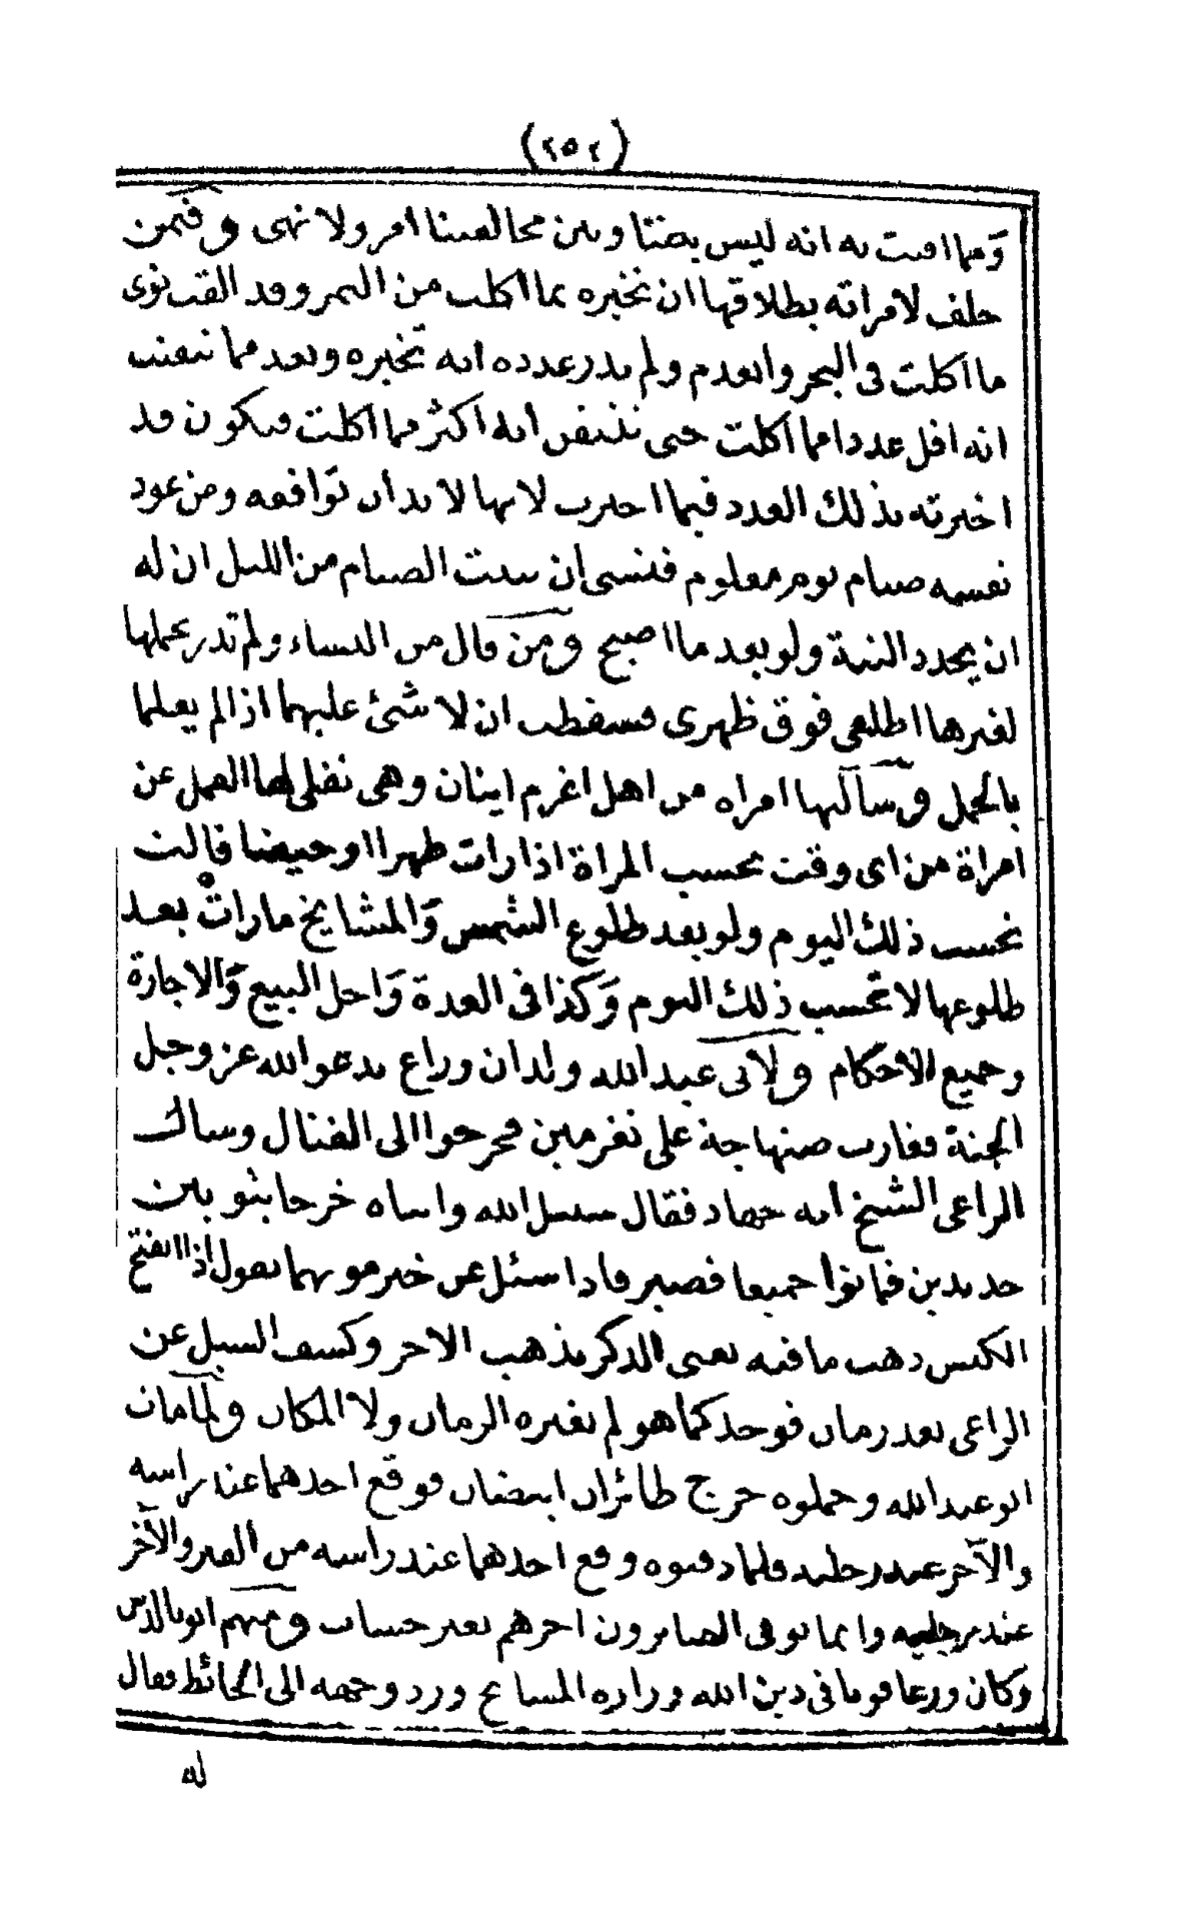 (٢٥٢)
ومما افتت به انه ليس بيننا وبين مخالفينا امر ولا نهى وفيمن
حلف لامراته بطلاقها ان تخبره بما اكلت من التمر وقد القت نوى
ما اكلت فى البحر وانعدم ولم يدر عدده انه تخبره وتعد مما تيقنت
انه اقل عددا مما اكلت حتى تتيقن انه اكثر مما اكلت فيكون قد
اخبرته بذلك العدد فيما اخبرت لانها لا بد أن توافقه ومن عود
نفسه صيام يوم معلوم فنسى ان يبيت الصيام من الليل ان له
ان يجدد النية ولو بعد ما اصبح ومن قال من النساء ولم تدر بحملها
لغيرها اطلعى فوق ظهرى فسقطت ان لا شئ عليهما اذا لم يعلما
بالحمل وسألتها امراه من اهل اغرم اينان وهى تفلى لها القمل عن
امراة من اى وقت تحسب المراة اذا رات طهرا او حيضا قالت
تحسب ذلك اليوم ولو بعد طلوع الشمس والمشايخ ما رات بعد
طلوعها لا تحسب ذلك اليوم وكذا فى العدة واحل البيع والاجارة
وجميع الاحكام ولابى عبد الله ولدان وراع يدعو الله عز وجل
الجنة فغارت صنهاجة على نفرمين فخرجوا الى القتال وسالت
الراعى الشيخ انه جهاد فقال سبيل الله وابناه خرجا بثوبين
جديدين فماتوا جميعا فصبر فاذا سئل عن خبر موتهما يقول اذا انفتح
الكيس ذهب ما فيه يعنى الذكر يذهب الاجر وكشف السيل عن
الراعى بعد زمان فوجد كما هو لم يغيره الزمان ولا المكان ولما مات
ابو عبد الله وحملوه خرج طائران ابيضان فوقع احدهما عند راسه
والآخر عند رجليه فلما دفنوه وقع احدهما عند راسه من القبر والآخر
عند رجليه وانما يوفى الصابرون اجرهم بغير حساب ومنهم ابو
وكان ورعا قويا فى دين الله وزاره المشايخ ورد وجهه الى الحائط فقال
له